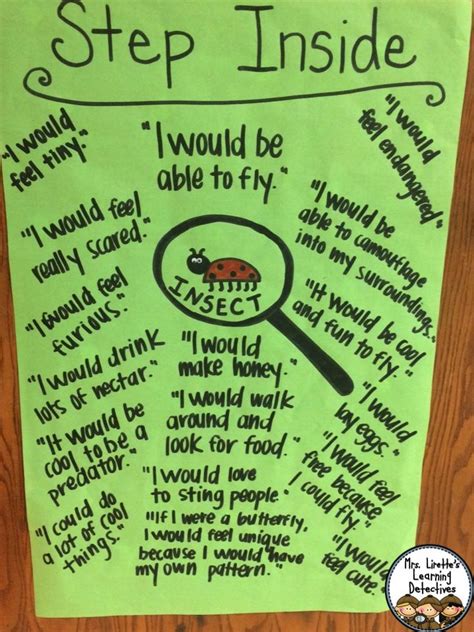 Step Inside
"I would
feel tiny."
"I would be
able to fly."
"I would
feel endangered"
"I would feel
really scared."
"I would be
able to camouflage
into my surroundings."
INSECT
"I would feel
furious."
"It would be cool
and fun to fly."
"I would drink
lots of nectar."
"I would
make honey."
"I would
lay eggs."
"It would be
cool to be a
predator."
"I would walk
around and
look for food."
"I would feel
free because
I could fly."
"I could do
a lot of cool
things."
"I would love
to sting people"
"If I were a butterfly,
I would feel unique
because I would have
my own pattern."
"I would
feel cute."
Mrs. Lirette's
Learning
Detectives